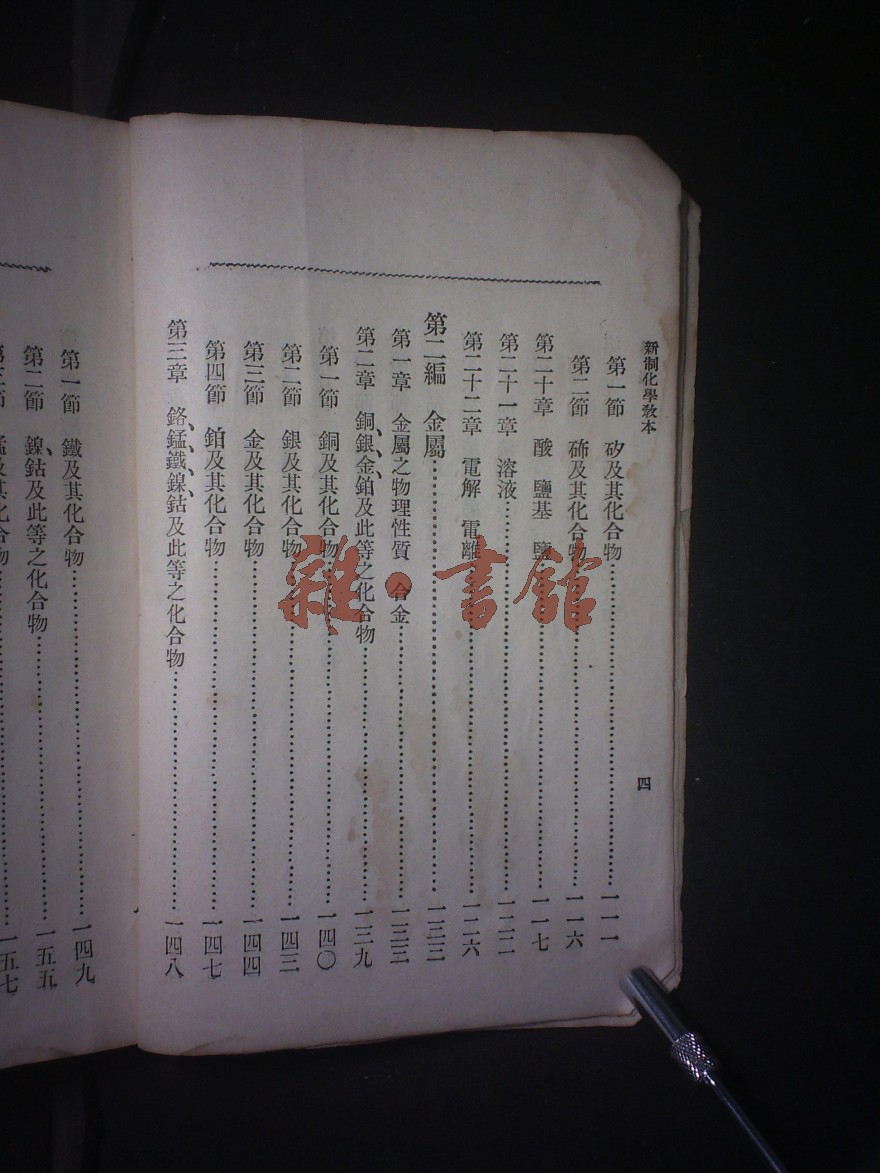 新制化學教本
四
第一節 矽及其化合物……一一一
第二節 砷及其化合物……一一六
第二十章 酸 鹽基 鹽……一一七
第二十一章 溶液……一二二
第二十二章 電解 電離……一二六
第二編 金屬……一三三
第一章 金屬之物理性質 合金……一三三
第二章 銅、銀、金、鉑及此等之化合物……一三九
第一節 銅及其化合物……一四〇
第二節 銀及其化合物……一四三
第三節 金及其化合物……一四四
第四節 鉑及其化合物……一四七
第三章 鉻、錳、鐵、鎳、鈷及此等之化合物……一四八
第一節 鐵及其化合物……一四九
第二節 鎳、鈷及此等之化合物……一五五
第三節 錳及其化合物……一五七
雜·書館